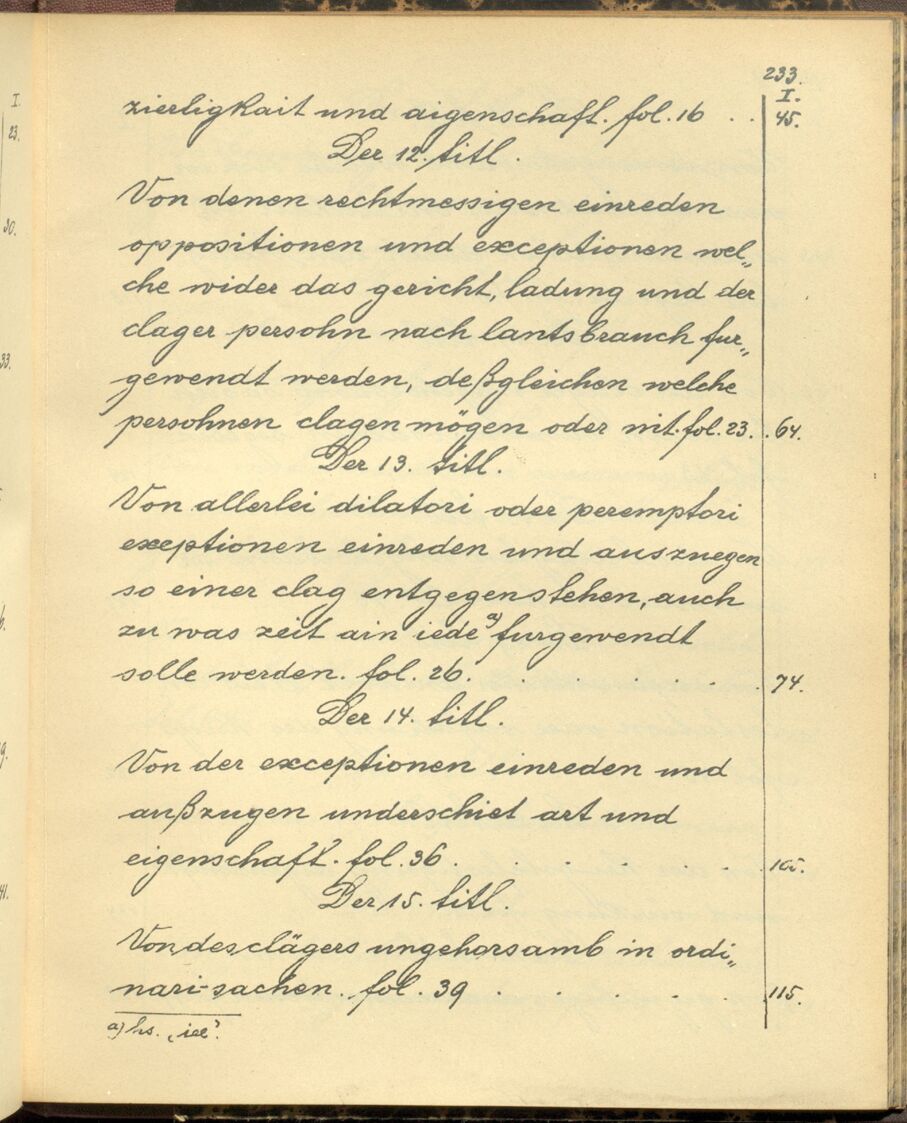 233.
I.
zierligkait und aigenschaft. fol. 16 . . 45.
Der 12. titl.
Von denen rechtmessigen einreden
oppositionen und exceptionen wel„
che wider das gericht, ladung und der
clager persohn nach lantsbrauch fur„
gewendt werden, deßgleichen welche
persohnen clagen mögen oder nit. fol. 23. . 64.
Der 13. titl.
Von allerlei dilatori oder peremptori
exeptionen einreden und auszuegen
so einer clag entgegenstehen, auch
zu was zeit ain iede a) furgewendt
solle werden. fol. 26. . . . . 74.
Der 14. titl.
Von der exceptionen einreden und
außzugen underschiet art und
eigenschaft. fol. 36 . . . . . . 105.
Der 15. titl.
Von des clägers ungehorsamb in ordi„
nari-sachen. fol. 39 . . . . . 115.
a) hs. „iee“.
I.
23.
30.
33.
6.
9.
41.